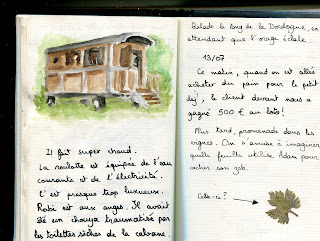 Il fait super chaud.
La roulotte est équipée de l'eau
courante et de l'électricité.
C'est presque trop luxueux.
Robi est aux anges. Il avait
été un chouya traumatisé par
les toilettes sèches de la cabane.
Balade le long de la Dordogne, en
attendant que l'orage éclate
13/07
Ce matin, quand on est allés
acheter du pain pour le petit
dej', le client devant nous a
gagné 500 € au loto!
Plus tard, promenade dans les
vignes. On s'amuse à imaginer
quelle feuille utilise Adam pour
cacher son zob.
Celle-ci ?